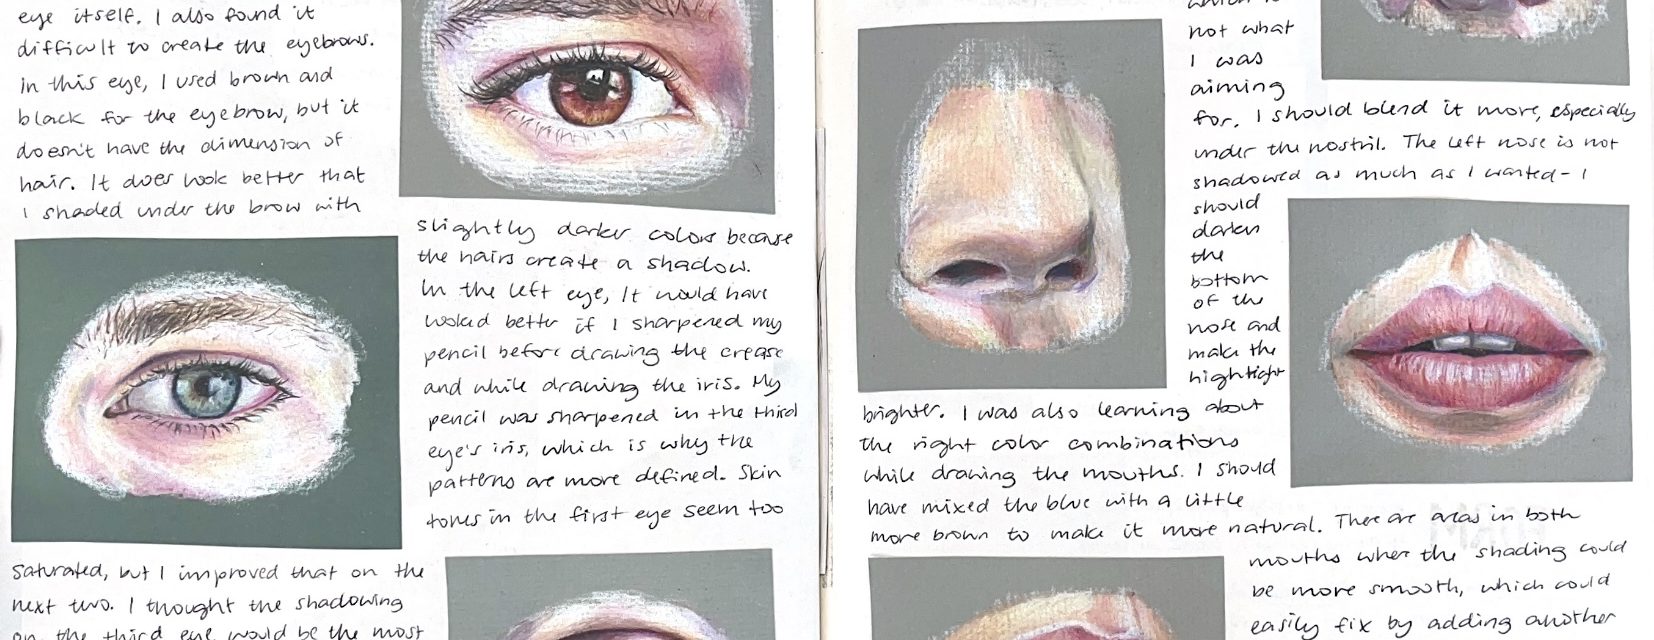 eye itself. I also found it
difficult to create the eyebrows.
in this eye, I used brown and
black for the eyebrow, but it
doesn't have the dimension of
hair. It does look better that
I shaded under the brow with
slightly darker colors because
the hairs create a shadow.
In the left eye, It would have
looked better if I sharpened my
pencil before drawing the crease
and while drawing the iris. My
pencil was sharpened in the third
eye's iris, which is why the
patterns are more defined. Skin
tones in the first eye seem too
saturated, but I improved that on the
next two. I thought the shadowing
on the third eye would be the most
which is
not what
I was
aiming
for. I should blend it more, especially
under the nostril. The left nose is not
shadowed as much as I wanted - I
should
darken
the
bottom
of the
nose and
make the
highlight
brighter. I was also learning about
the right color combinations
while drawing the mouths. I should
have mixed the blue with a little
more brown to make it more natural. There are areas in both
mouths wher the shading could
be more smooth, which could
easily fix by adding another